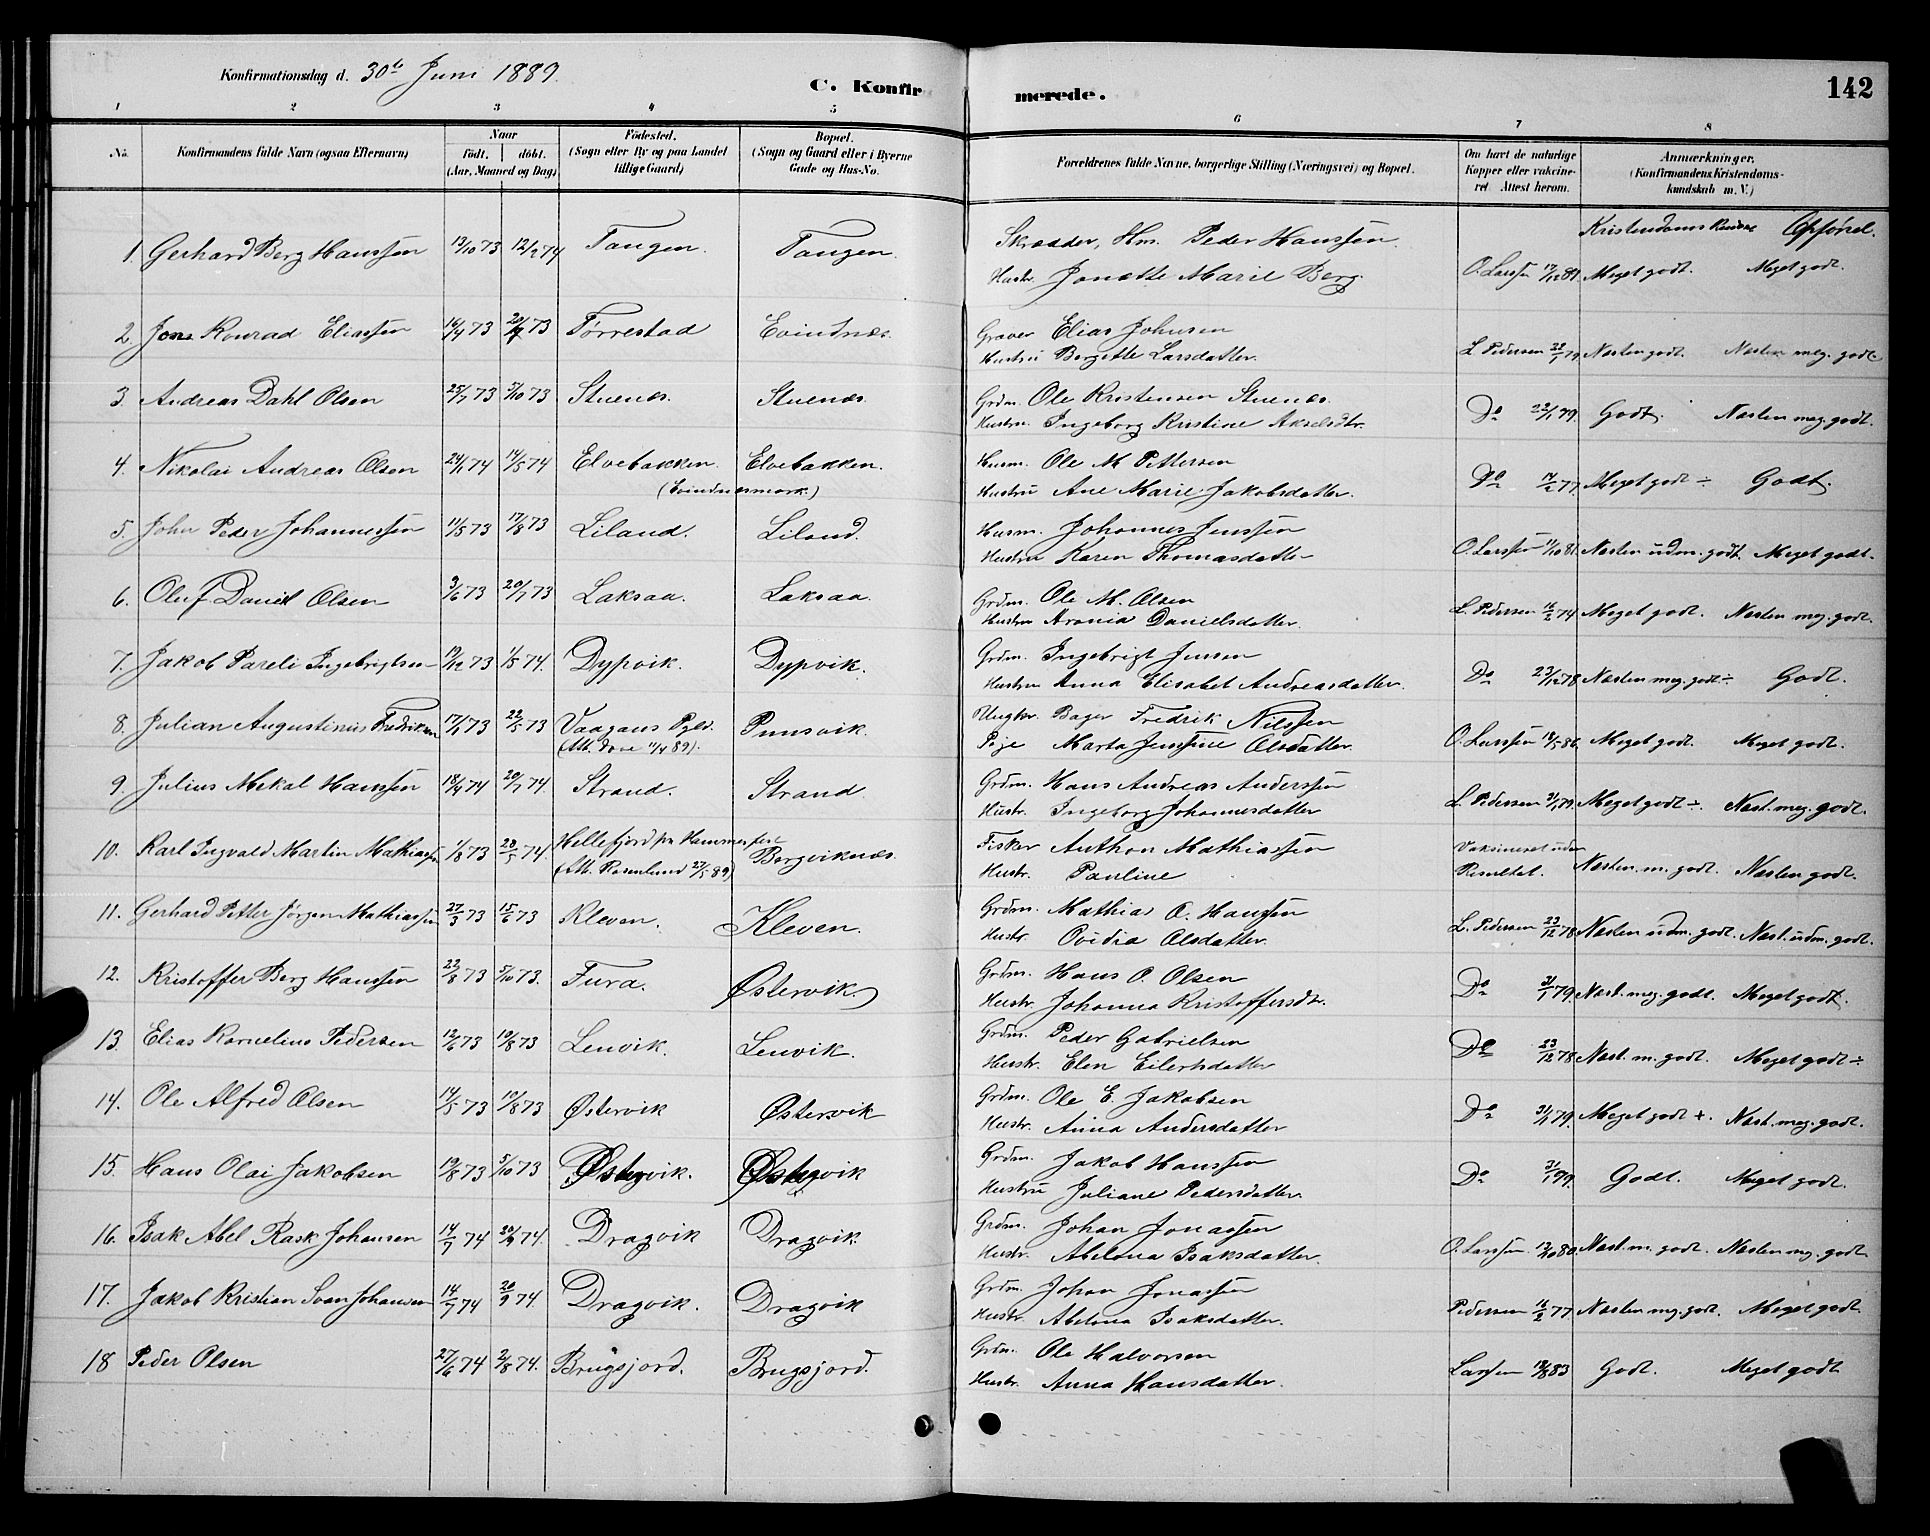 Konfirmationsdag d. 30te Juni 1889.
C. Konfirmerede.
142
1 2 3 4 5 6 7 8
No. Konfirmandens fulde Navn (ogsaa Efternavn) Naar födt. döbt. (Aar, Maaned og Dag) Födested. (Sogn eller By og paa Landet tillige Gaard) Bopæl. (Sogn og Gaard eller i Byerne Gade og Hus-No. Forældrenes fulde Navne, borgerlige Stilling (Næringsvei) og Bopæl. Om havt de naturlige Kopper eller vakcineret. Attest herom. Anmærkninger. (Konfirmandens Kristendomskundskab m. V.)
Kristendoms Kundsk. Opförsel.
1. Gerhard Berg Hanssen 13/10 73 12/2 74 Tangen. Tangen. Skrædder, Hm. Peder Hanssen
Hustr. Jonette Marie Berg. O. Larssen 17/12 81. Meget godt. Meget godt.
2. Jens Konrad Eliassen 14/4 73 20/7 73 Tørrestad Evindnes. Graver Elias Johnsen
Hustru Bergitte Larsdatter. L. Pedersen 22/1 79 Næsten godt. Næsten meg. godt.
3. Andreas Dahl Olsen 25/7 73 5/10 73 Stuenes. Stuenes. Grdm. Ole Kristensen Stuenes.
Hustru. Ingeborg Kristine Akselsdtr. Do 22/1 79. Godt. Næsten meg. godt.
4. Nikolai Andreas Olsen 24/1 74 14/5 74 Elvebakken. Elvebakken. Husm. Ole M. Pettersen
(Evindnesmark.) Hustru Ane Marie Jakobsdatter. Do 17/2 77. Meget godt ÷ Godt.
5. John Peder Johannessen 11/5 73 17/8 73 Liland. Liland. Husm. Johannes Jenssen
Hustru Karen Thomasdatter O. Larssen 11/10 81. Næsten udm. godt. Meget godt.
6. Oluf Daniel Olsen 3/6 73 20/7 73 Laksaa. Laksaa. Grdm. Ole M. Olsen
Hustru Aronia Danielsdatter. L. Pedersen 16/2 74 Meget godt. Næsten meg. godt.
7. Jakob Pareli Ingebrigtsen 19/12 73 1/5 74. Dypvik. Dypvik. Grdm. Ingebrigt Jensen
Hustru Anna Elisabet Andreasdatter. Do 23/12 78 Næsten meg. godt ÷ Godt.
8. Julian Augustinius Fredriksen 17/1 73 22/5 73 Vaagans Pgld. Punsvik. Ungkr. Bager Fredrik Nilssen
(Att. Dove 11/4 89). Pige Marta Jenssine Olsdatter. O. Larssen 18/5 86. Meget godt. Meget godt.
9. Julius Mekal Hanssen 18/4 74 20/7 74. Strand. Strand Grdm. Hans Andreas Anderssen
Hustr. Ingeborg Johannesdatter L. Pedersen 31/1 79. Meget godt ÷. Næst. meg. godt.
10. Karl Ingvald Martin Mathiassen 1/8 73 28/5 74. Hellefjord pr Hammerfest Bergviknes. Fisker Anthon Mathiassen
(Att. Rosenlund 27/5 89) Hustr. Pauline Vaksineret uden Resultat. Næsten. m. godt. Næsten godt.
11. Gerhard Petter Jørgen Mathiassen 27/3 73 15/6 73 Kleven. Kleven. Grdm. Mathias A. Hanssen
Hustr. Ovidia Olsdatter. L. Pedersen 23/12 78 Næsten udm. godt. Næst. udm. godt.
12. Kristoffer Berg Hanssen 22/8 73 5/10 73. Fura. Østervik. Grdm. Hans O. Olsen
Hustr. Johanna Kristoffersdtr. Do 31/1 79 Næst. meg. godt. Meget godt.
13. Elias Kornelius Pedersen 12/6 73 10/8 73 Lenvik. Lenvik. Grdm. Peder Gabrielsen
Hustr. Elen Eilertsdatter Do 23/12 78 Næst. m. godt. Meget godt ÷
14. Ole Alfred Olsen 14/5 73 10/8 73 Østervik Østervik Grdm. Ole E. Jakobsen
Hustr. Anna Andersdatter Do 31/1 79. Meget godt +. Næst. meg. godt.
15. Hans Olai Jakobsen 19/8 73 5/10 73 Østervik. Østervik Grdm. Jakob Hanssen
Hustru Juliane Pedersdatter. Do 31/1 79. Godt. Meget godt.
16. Isak Abel Rask Johansen 14/7 74 20/9 74. Dragvik Dragvik. Grdm. Johan Jonassen
Hustr. Abelona Isaksdatter. O. Larssen. 13/10 80. Næst. m. godt. Næsten mg. godt.
17. Jakob Kristian Svan Johansen 14/7 74 20/9 74. Dragvik. Dragvik Grdm. Johan Jonassen
Hustr. Abelona Isaksdatter. Pedersen 16/2 77 Næsten mg. godt. Meget godt.
18 Peder Olsen 27/6 74 2/8 74. Brugsjord. Brugsjord. Grdm. Ole Halvorsen
Hustr. Anna Hansdatter. Larssen 18/8 83 Godt. Meget godt